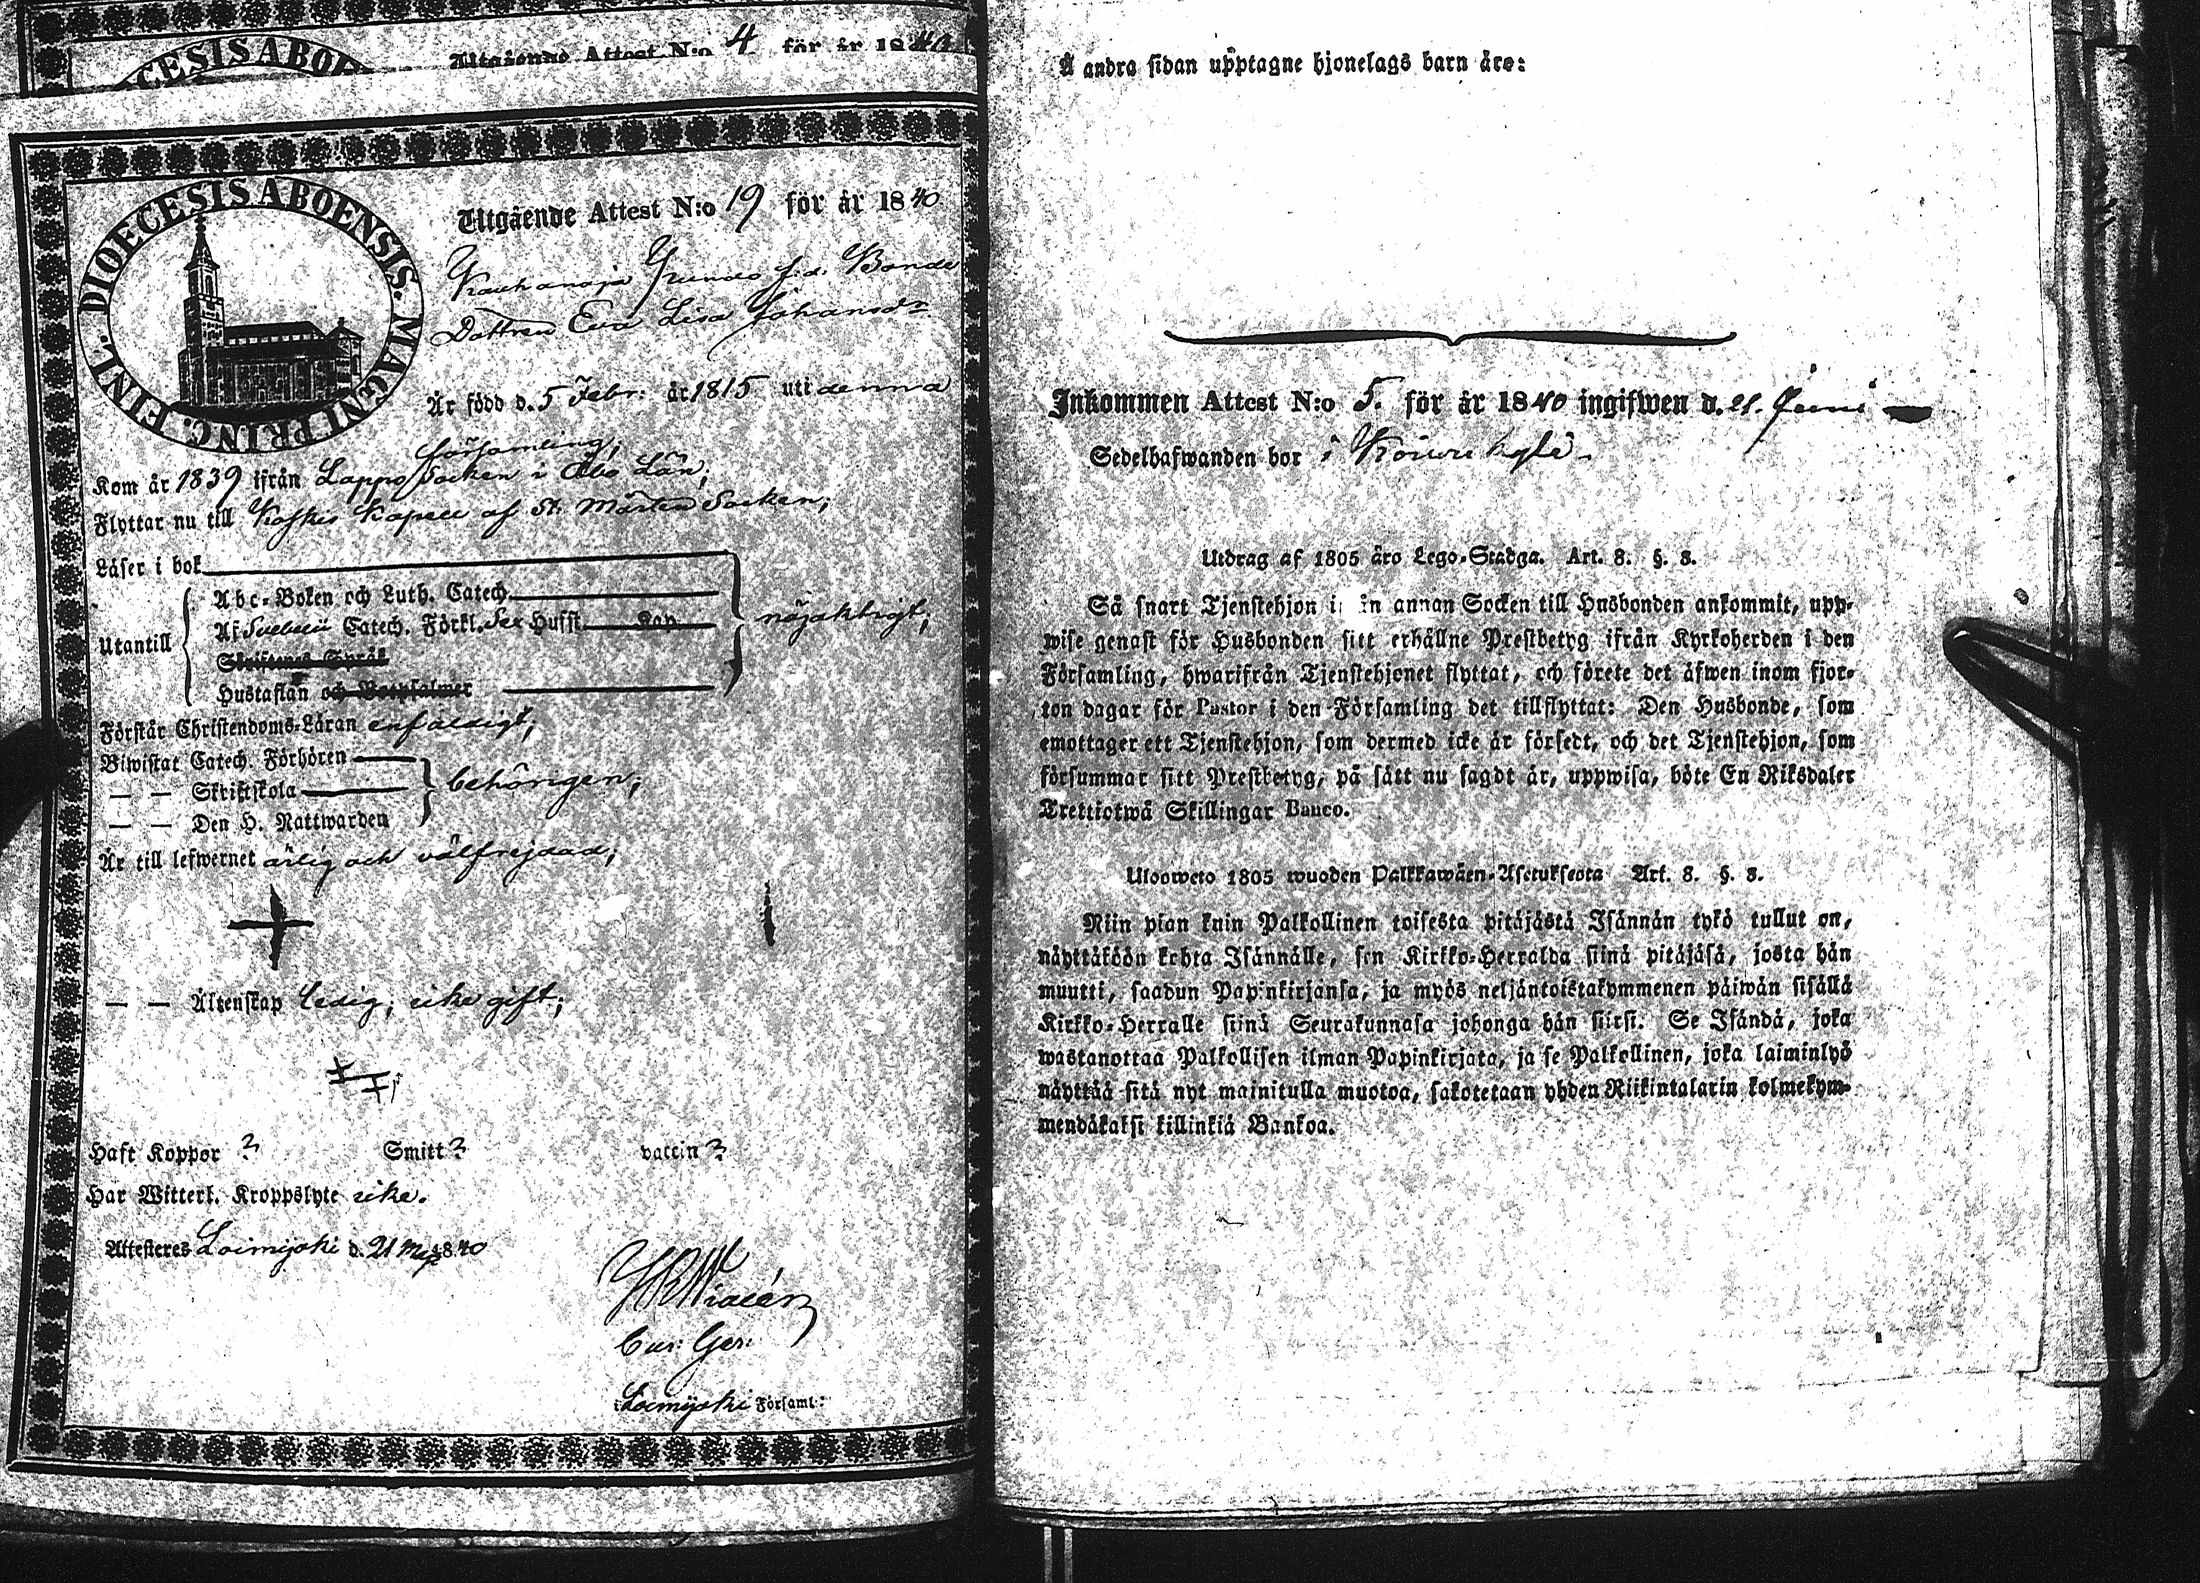 CESIS ABOE
Utgående Attest N:o 4 för år 1840
DIOECESIS ABOENSIS. MAGNI PRINC. FINL.
Utgående Attest N:o 19 för år 1840
f. d. Bonde
Dottren Eva Lisa Johansdr
Är född d. 5 Febr: år 1815 uti denna
församling;
Kom år 1839 ifrån Lappo Socken i Åbo Län,
Flyttar nu till Koskis Kapell af St. Mårtens Socken;
Läser i bok
Utantill
Abc-Boken och Luth. Catech.
Af Svebelii Catech. Förkl. Sex Hufst. Kap
Skriftenes Språk
Hustaflan och Botpsalmer
nöjaktigt;
Förstår Christendoms-Läran enfaldigt;
Biwistat Catech. Förhören
— — Skriftskola
— — Den H. Nattwarden
behörigen;
Är till lefwernet ärlig och välfrejdad;
— — Äktenskap ledig; icke gift;
Haft Koppor ? Smitt ? vaccin ?
Har Witterl. Kroppslyte icke.
Attesteres Loimijoki d. 21 Maji 1840
i Loimijoki Församl:
Å andra sidan upptagne hjonelags barn äro:
Inkommen Attest N:o 5. för år 1840 ingifwen d. 21. Juni
Sedelhafwanden bor i
Utdrag af 1805 äro Lego-Stadga. Art. 8. §. 8.
Så snart Tjenstehjon ifrån annan Socken till Husbonden ankommit, upp-
wise genast för Husbonden sitt erhållne Prestbetyg ifrån Kyrkoherden i den
Församling, hwarifrån Tjenstehjonet flyttat, och förete det äfwen inom fjor-
ton dagar för Pastor i den Församling det tillflyttat: Den Husbonde, som
emottager ett Tjenstehjon, som dermed icke är försedt, och det Tjenstehjon, som
försummar sitt Prestbetyg, på sätt nu sagdt är, uppwisa, böte En Riksdaler
Trettiotwå Skillingar Banco.
Uloosweto 1805 wuoden Palkkawäen-Asetuksesta Art. 8. §. 8.
Niin pian kuin Palkollinen toisesta pitäjästä Isännän tykö tullut on,
näyttäköön kohta Isännälle, sen Kirkko-Herralda siinä pitäjäsä, josta hän
muutti, saadun Papinkirjansa, ja myös neljäntoistakymmenen päiwän sisällä
Kirkko-Herralle siinä Seurakunnasa johonga hän siirsi. Se Isändä, joka
wastanottaa Palkollisen ilman Papinkirjata, ja se Palkollinen, joka laiminlyö
näyttää sitä nyt mainitulla muotoa, sakotetaan yhden Riikintalarin kolmekym-
mendäkaksi killinkiä Bankoa.